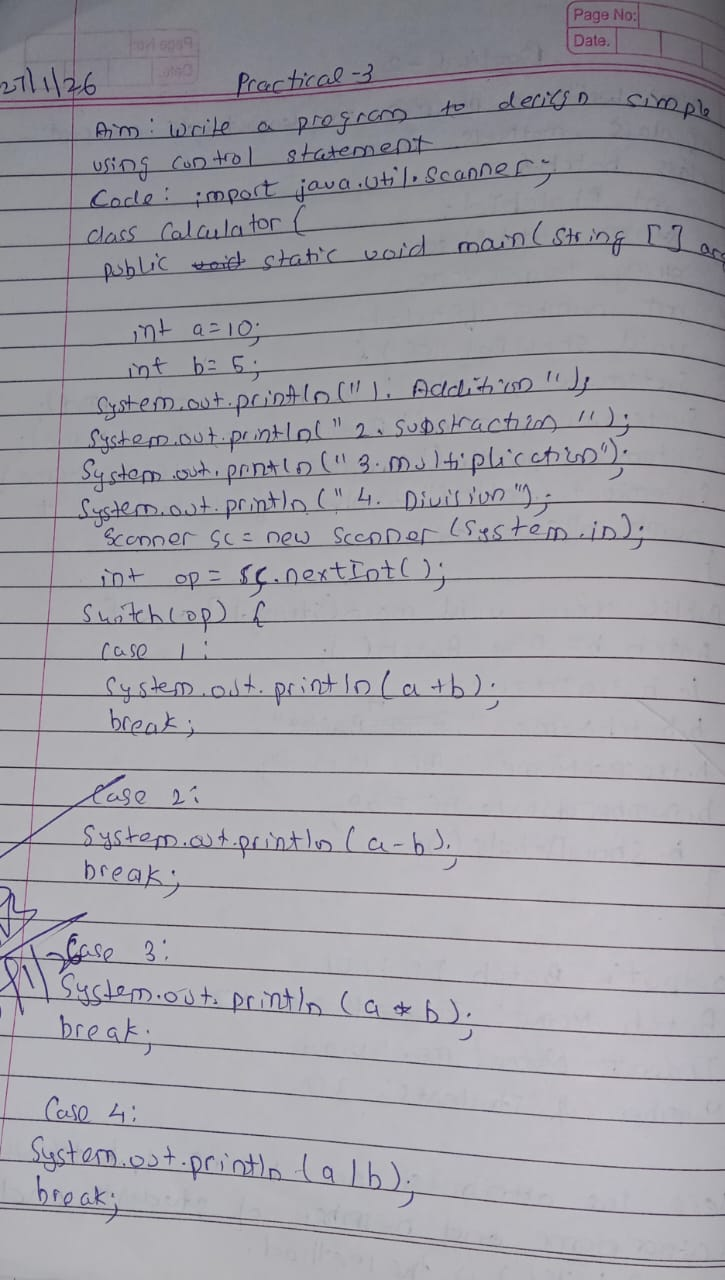 Page No:
Date.
27/1/26 Practical-3
Aim: Write a program to design simple
using control statement
Code: import java.util.Scanner;
class Calculator {
public static void main(String [] ar
int a=10;
int b=5;
System.out.println("1. Addition");
System.out.println("2. Substraction");
System.out.println("3. multiplication");
System.out.println("4. Division");
Scanner sc = new Scanner(System.in);
int op = sc.nextInt();
Switch(op) {
case 1:
System.out.println(a+b);
break;
Case 2:
System.out.println(a-b);
break;
Case 3:
System.out.println(a*b);
break;
Case 4:
System.out.println(a/b);
break;